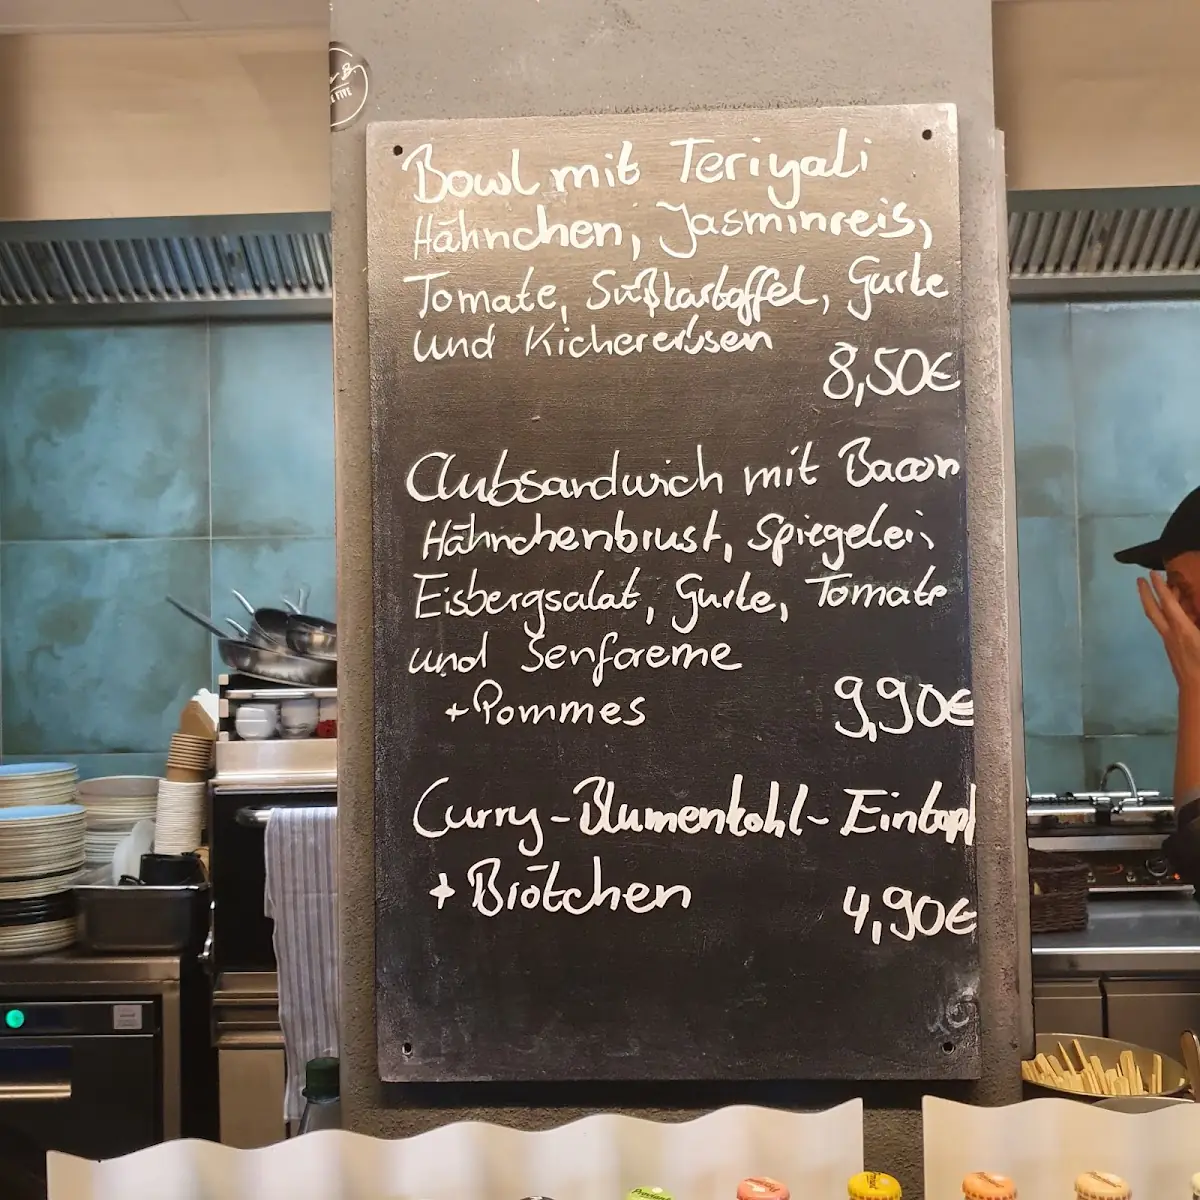 Bowl mit Teriyaki
Hähnchen, Jasminreis,
Tomate, Süßkartoffel, Gurke
und Kichererbsen
8,50€
Clubsandwich mit Bacon
Hähnchenbrust, Spiegelei,
Eisbergsalat, Gurke, Tomate
und Senfcreme
+ Pommes
9,90€
Curry-Blumenkohl-Eintopf
+ Brötchen
4,90€